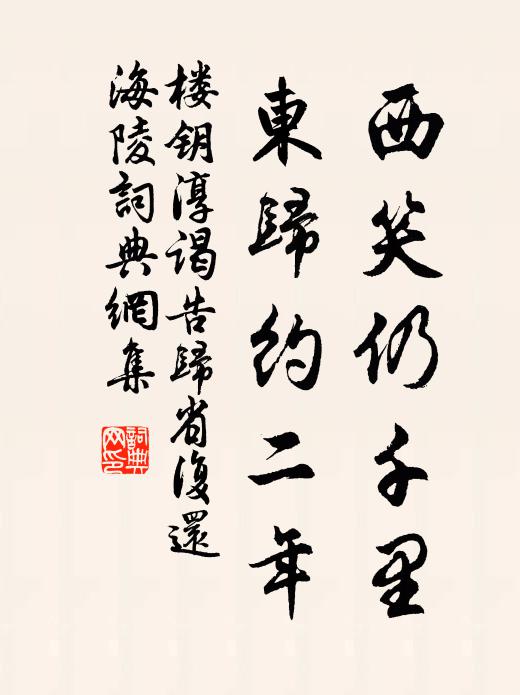 西笑仍千里
東歸約二年
楼钥淳谒告歸省復還
海陵詞典網集
詞典
网印